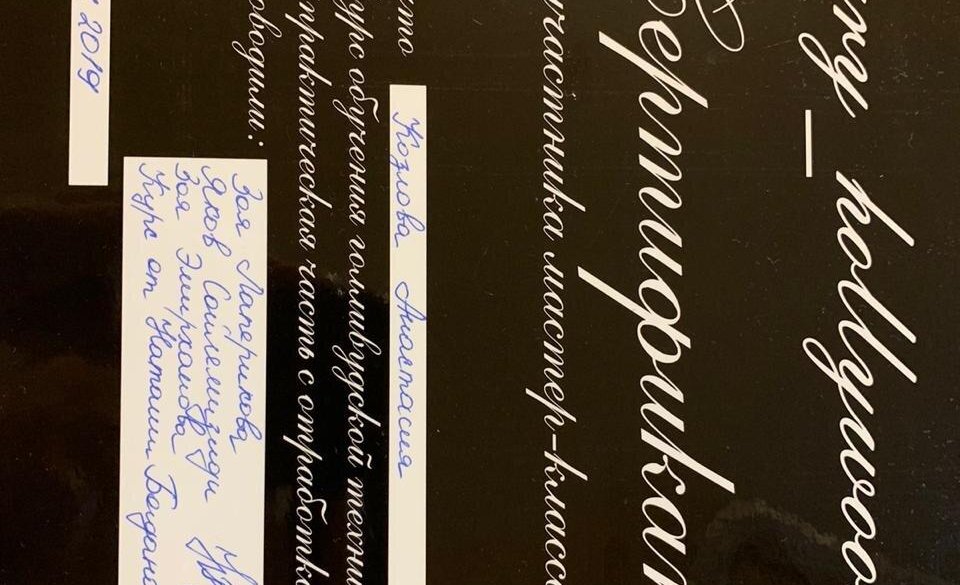 ту_hollywoo
Сертификат
участника мастер-класса
что
Козлова Анастасия
курс обучения голливудской техник
практическая часть с отработко
оводили:
Зоя Лаперикова
Яков
Зоя Эмирханова
Курс от Наталии Богдано
2019